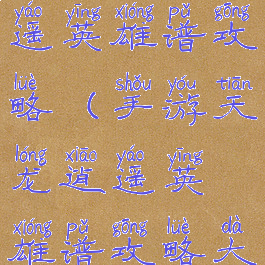 yáo yīng xióng pǔ gōng
遥英雄谱攻
lüè shǒu yóu tiān
略(手游天
lóng xiāo yáo yīng
龙逍遥英
xióng pǔ gōng lüè dà
雄谱攻略大